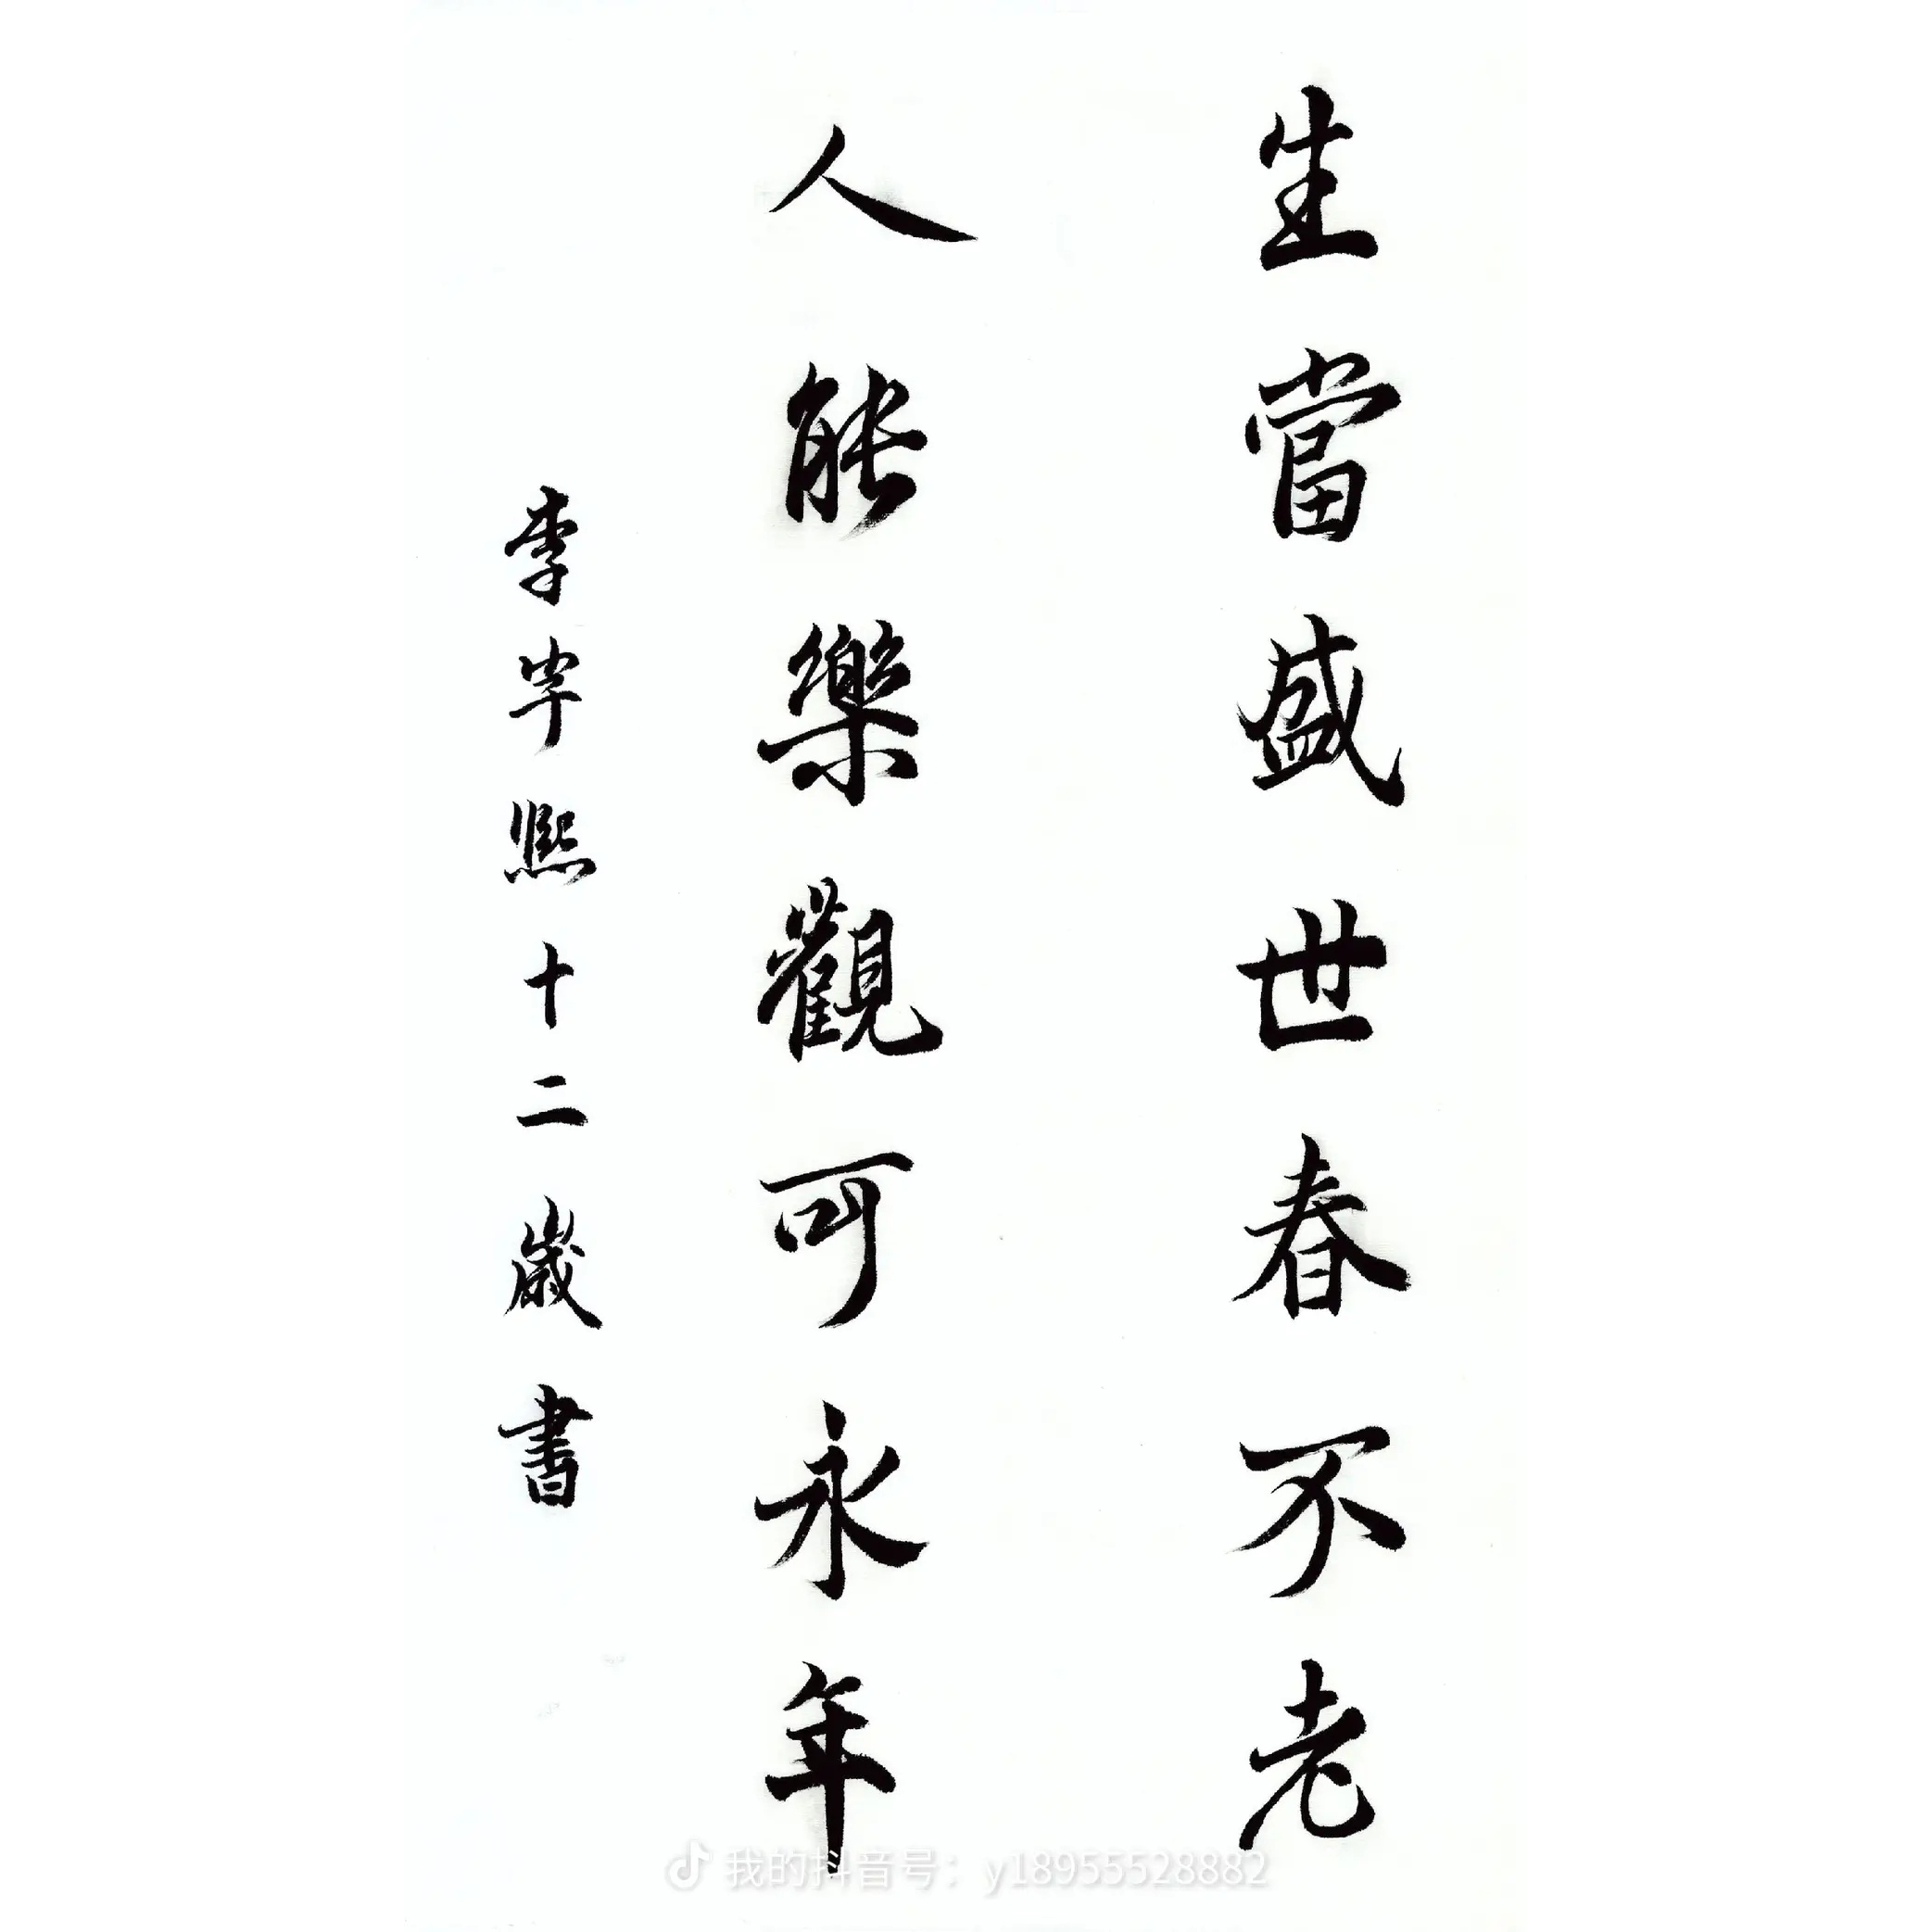 生當盛世春不老
人能樂觀可永年
李字熙十二歲書
我的抖音号：y18955528882